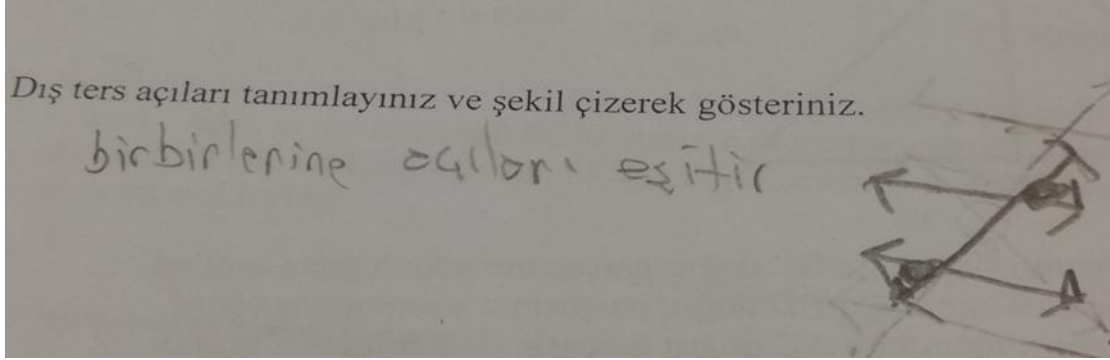 Dış ters açıları tanımlayınız ve şekil çizerek gösteriniz.
birbirlerine açıları eşitir